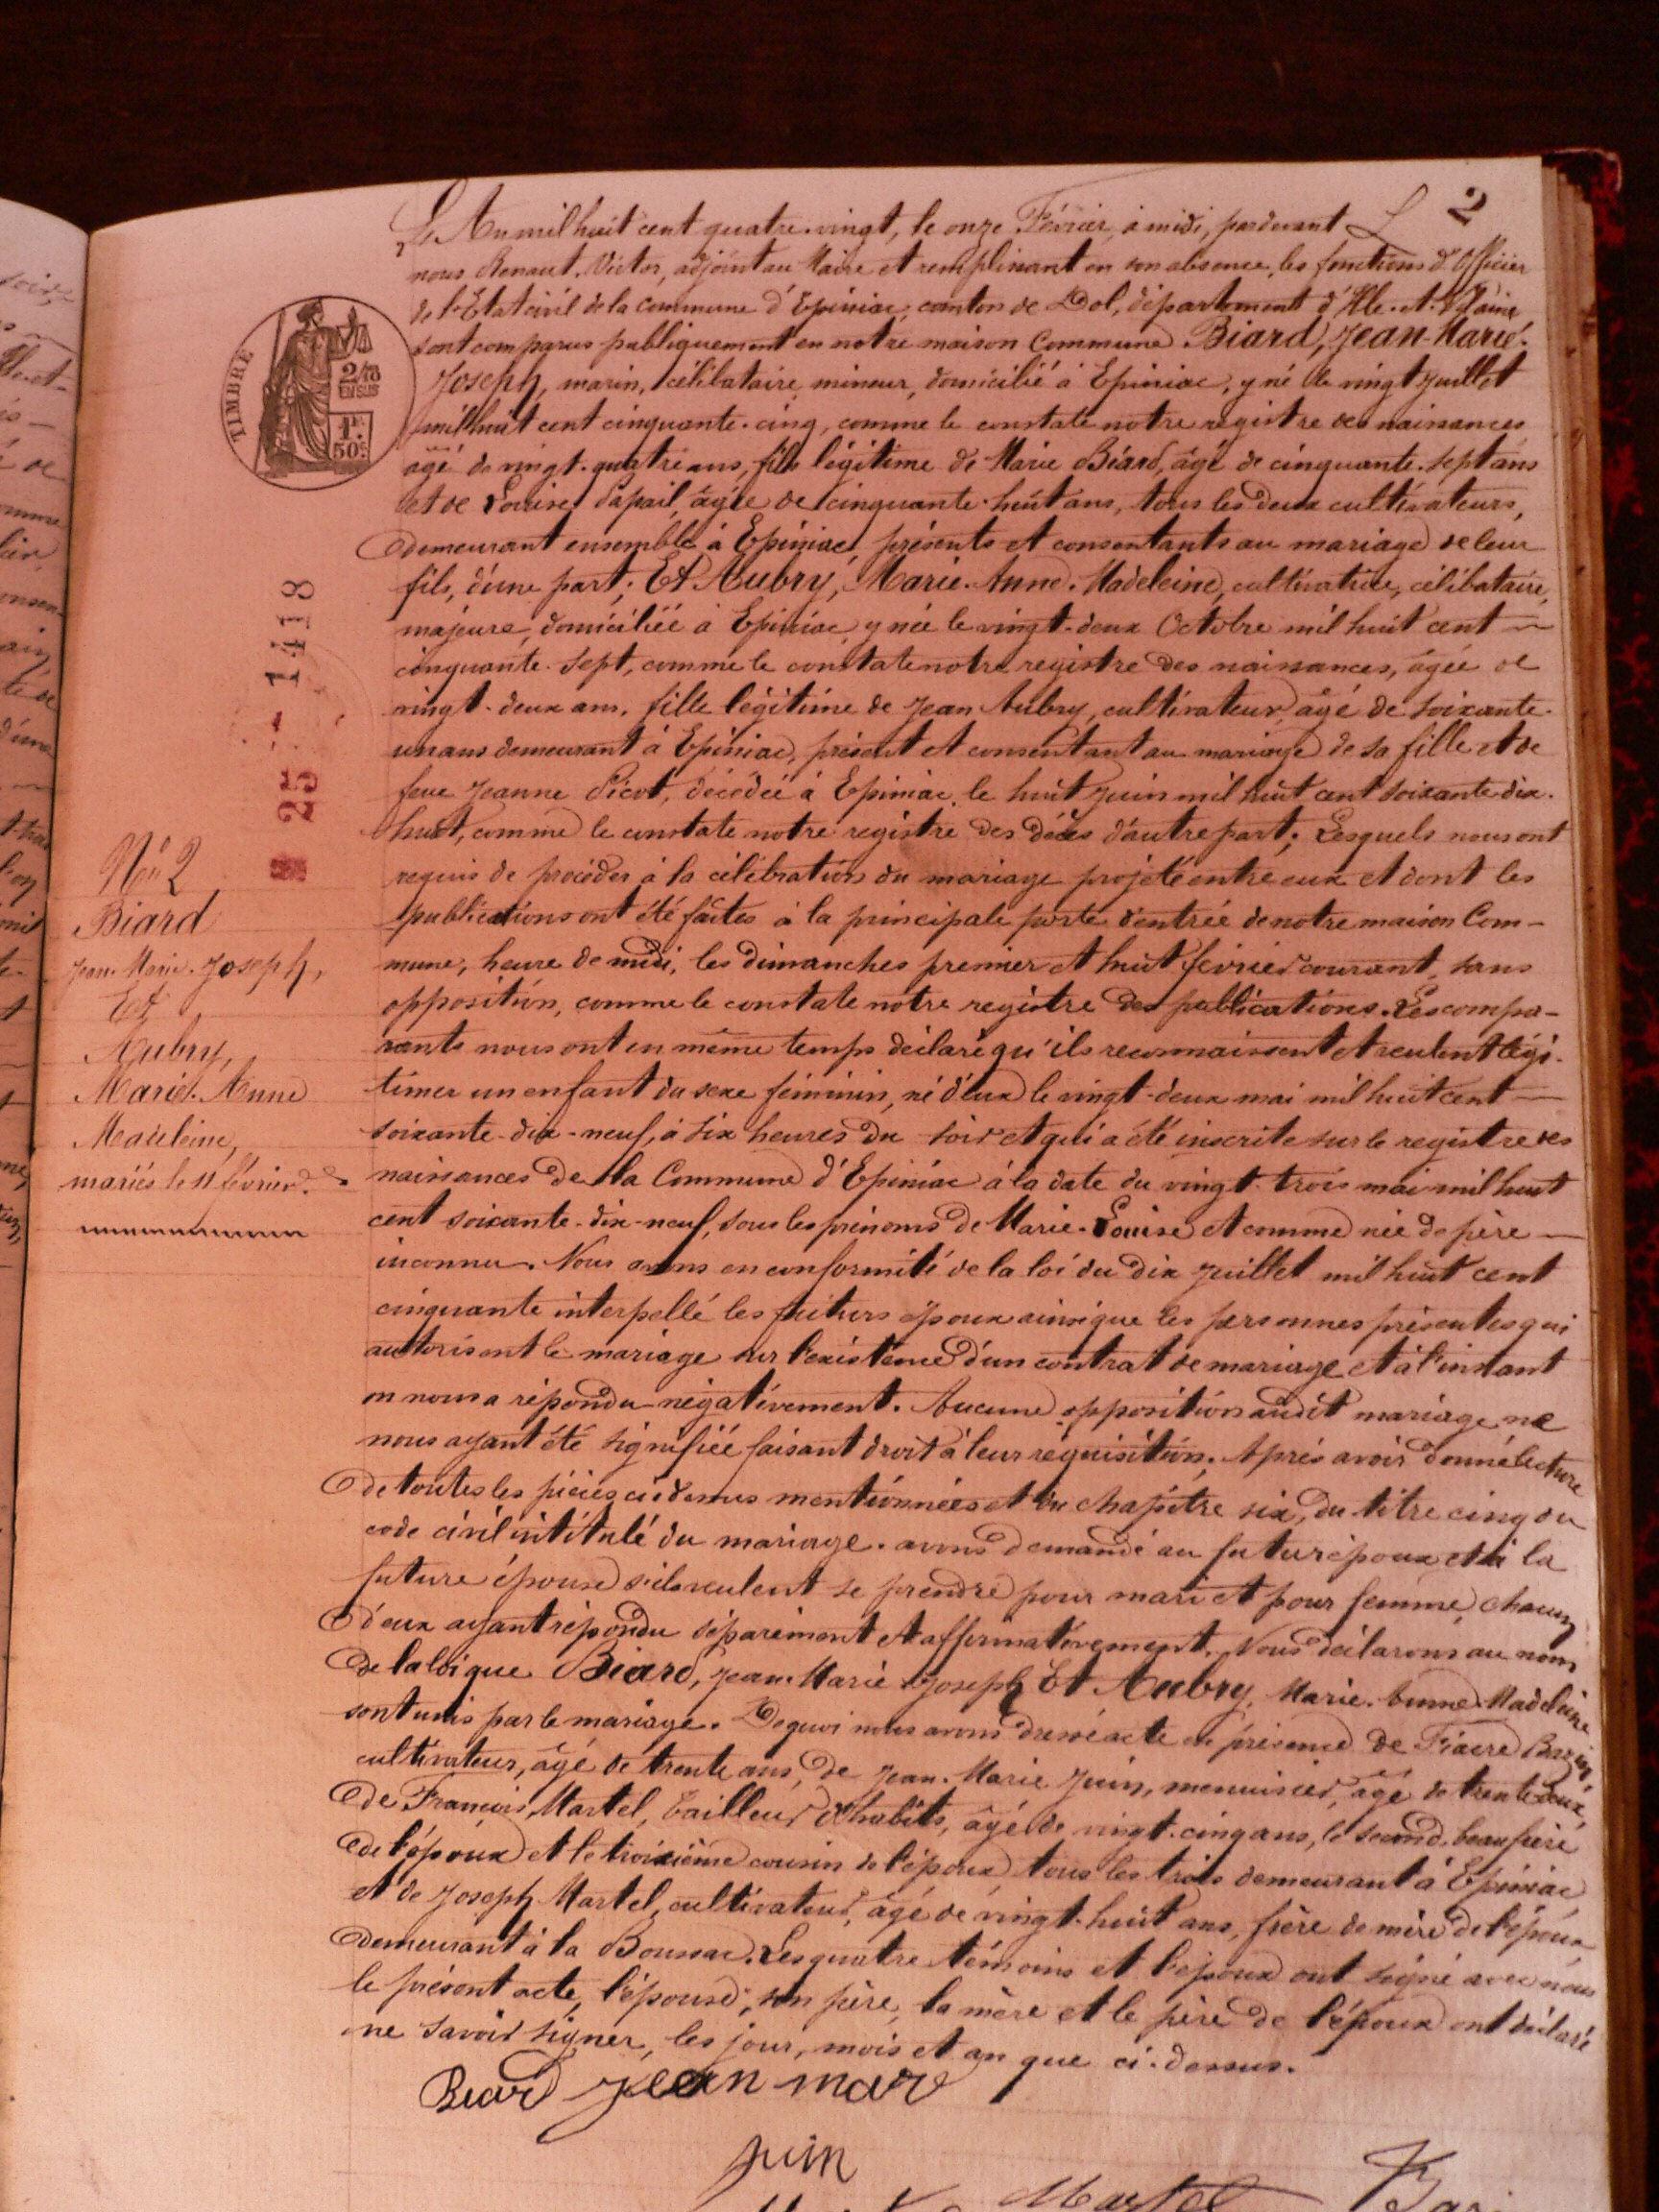 2
L'An mil huit cent quatre-vingt, le onze Février, à midi, pardevant
nous Renaut, Victor, adjoint au Maire et remplissant en son absence, les fonctions d'Officier
de l'Etat civil de la commune d'Epiniac, canton de Dol, département d'Ille-et-Vilaine
sont comparus publiquement en notre maison Commune Biard, Jean-Marie-
Joseph, marin, célibataire, mineur, domicilié à Epiniac, y né le vingt juillet
mil huit cent cinquante-cinq, comme le constate notre registre des naissances
âgé de vingt-quatre ans, fils légitime de Marie Biard, âgé de cinquante-sept ans
et de Louise Dapail, âgée de cinquante-huit ans, tous les deux cultivateurs,
demeurant ensemble à Epiniac, présents et consentants au mariage de leur
fils, d'une part; Et Aubry, Marie-Anne-Madeleine, cultivatrice, célibataire,
majeure, domiciliée à Epiniac, y née le vingt-deux Octobre mil huit cent
cinquante-sept, comme le constate notre registre des naissances, âgée de
vingt-deux ans, fille légitime de Jean Aubry, cultivateur, âgé de soixante-
un ans demeurant à Epiniac, présent et consentant au mariage de sa fille et de
feue Jeanne Picot, décédée à Epiniac le huit juin mil huit cent soixante-dix-
huit, comme le constate notre registre des décès d'autre part; Lesquels nous ont
requis de procéder à la célébration du mariage projeté entre eux et dont les
publications ont été faites à la principale porte d'entrée de notre maison Com-
mune, heure de midi, les dimanches premier et huit février courant, sans
opposition, comme le constate notre registre des publications. Les compa-
rants nous ont en même temps déclaré qu'ils reconnaissent et veulent légi-
timer un enfant du sexe féminin, né d'eux le vingt-deux mai mil huit cent
soixante-dix-neuf, à six heures du soir et qui a été inscrite sur le registre des
naissances de la Commune d'Epiniac à la date du vingt-trois mai mil huit
cent soixante-dix-neuf, sous les prénoms de Marie-Louise et comme née de père
inconnu. Nous avons en conformité de la loi du dix juillet mil huit cent
cinquante interpellé les futurs époux ainsi que les personnes présentes qui
autorisent le mariage sur l'existence d'un contrat de mariage et à l'instant
on nous a répondu négativement. Aucune opposition audit mariage ne
nous ayant été signifiée faisant droit à leur réquisition, Après avoir donné lecture
de toutes les pièces ci-dessus mentionnées et du chapitre six, du titre cinq du
code civil intitulé du mariage. avons demandé au futur époux et à la
future épouse s'ils veulent se prendre pour mari et pour femme, chacun
d'eux ayant répondu séparément et affirmativement. Nous déclarons au nom
de la loi que Biard, Jean-Marie-Joseph Et Aubry, Marie-Anne-Madeleine
sont unis par le mariage. De quoi nous avons dressé acte en présence de Fiacre Bazin,
cultivateur, âgé de trente ans, de Jean-Marie Juin, menuisier, âgé de trente-deux,
de François Martel, tailleur d'habits, âgé de vingt-cinq ans, le second beau frère
de l'époux et le troisième cousin de l'époux, tous les trois demeurant à Epiniac
et de Joseph Martel, cultivateur, âgé de vingt-huit ans, frère de mère de l'époux
demeurant à la Boussac. Les quatre témoins et l'époux ont signé avec nous
le présent acte, l'épouse, son père, la mère et le père de l'époux ont déclaré
ne savoir signer, les jour, mois et an que ci-dessus.
Biard Jean mare
juin
Martel
TIMBRE
2/10
EN SUS
1F
50C
25
1418
No 2
Biard
Jean-Marie-Joseph,
Et
Aubry,
Marie-Anne
Madeleine,
mariés le 11 février.